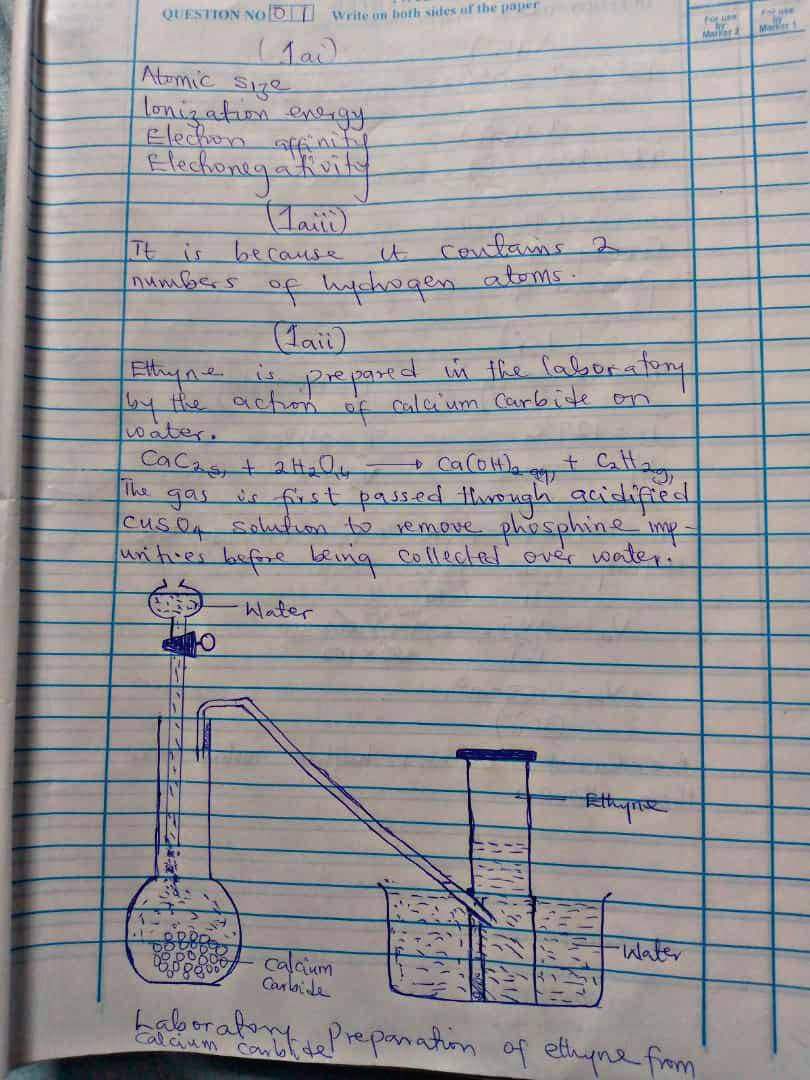 QUESTION NO 01 Write on both sides of the paper
For use by Marker 2
For use by Marker 1
(1ai)
Atomic size
Ionization energy
Electron affinity
Electronegativity
(1aiii)
It is because it contains 2
numbers of hydrogen atoms.
(1aii)
Ethyne is prepared in the laboratory
by the action of calcium carbide on
water.
CaC2(s) + 2H2O(l) → Ca(OH)2(aq) + C2H2(g)
The gas is first passed through acidified
CuSO4 solution to remove phosphine imp-
urities before being collected over water.
Water
Ethyne
Water
Calcium
Carbide
Laboratory preparation of ethyne from
calcium carbide